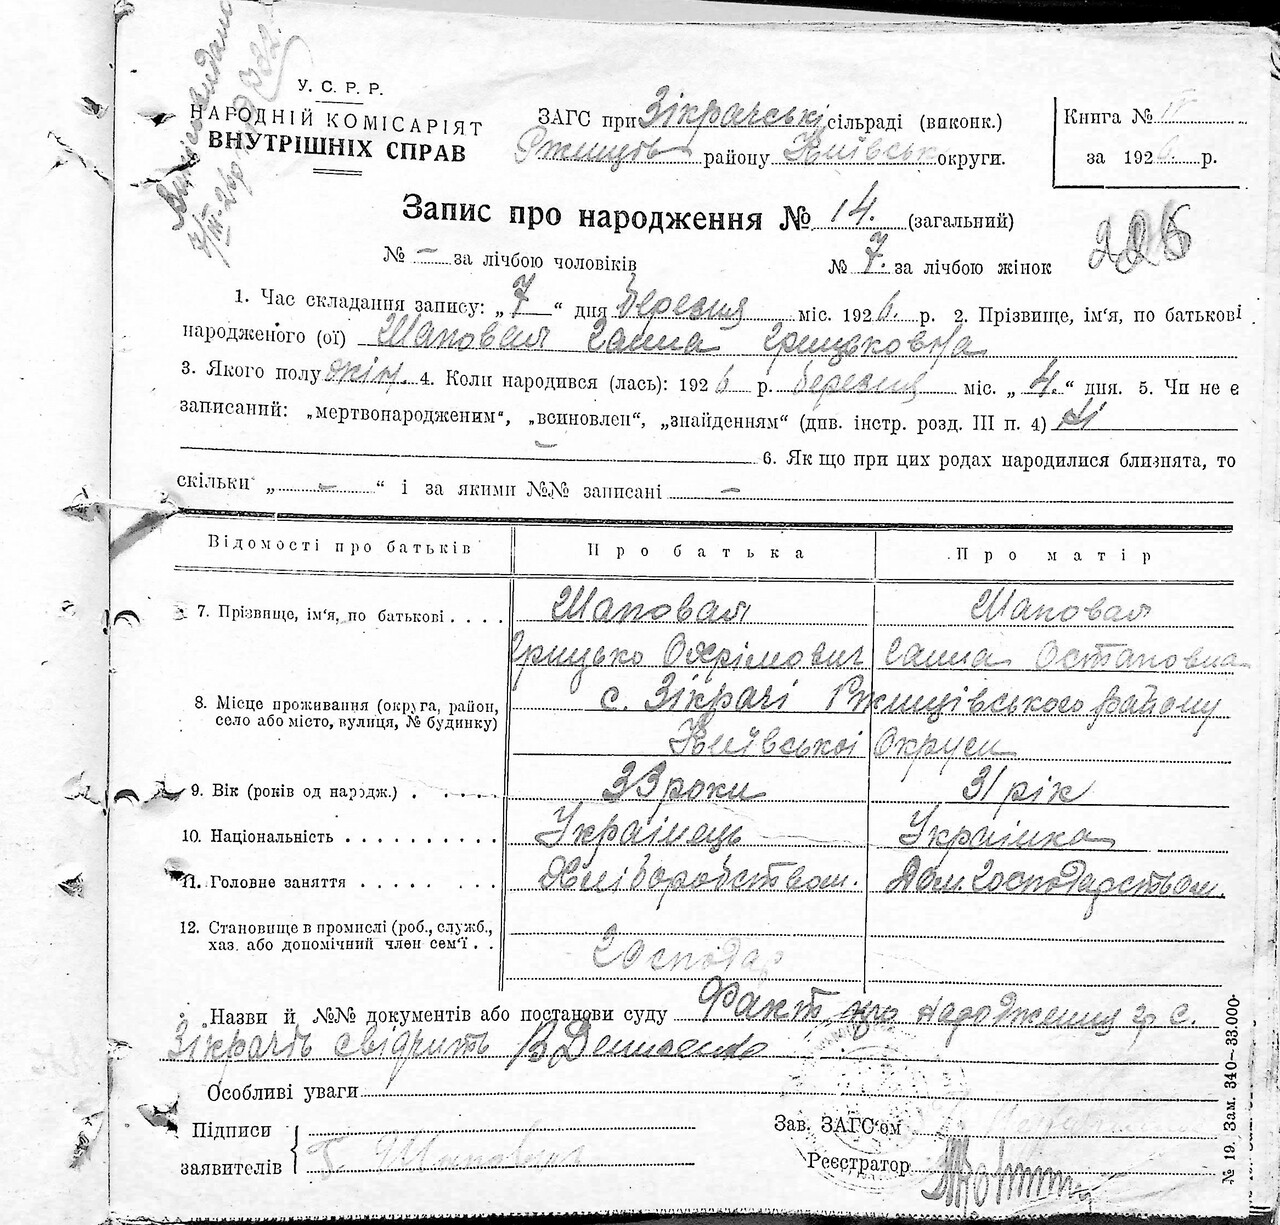 У. С. Р. Р.
НАРОДНІЙ КОМІСАРІЯТ
ВНУТРІШНІХ СПРАВ
ЗАГС при Зікрачські сільраді (виконк.)
Ржищів району Київськ округи.
Книга №
за 1926 р.
Запис про народження № 14. (загальний)
225
№ – за лічбою чоловіків № 7. за лічбою жінок
1. Час складання запису: „ 7 “ дня березня міс. 1926. р. 2. Прізвище, ім'я, по батькові
народженого (ої) Шаповал Ганна Грицьковна
3. Якого полу жін. 4. Коли народився (лась): 1926 р. березня міс. „ 4. “ дня. 5. Чи не є
записаний: „мертвонародженим“, „всиновлен“, „знайденням“ (див. інстр. розд. III п. 4) Ні
– 6. Якщо при цих родах народилися близнята, то
скільки „ – “ і за якими №№ записані –
Відомості про батьків Про батька Про матір
7. Прізвище, ім'я, по батькові . . . . Шаповал Шаповал
Грицько Охрімович Ганна Остаповна
8. Місце проживання (округа, район, село або місто, вулиця, № будинку) с. Зікрачі Ржищівського району
Київської Округи
9. Вік (років од народж.) . . . . . . 33 роки 31 рік
10. Національність . . . . . . . . . . Українець Українка
11. Головне заняття . . . . . . . . . Хліборобством. Дом. Господарством.
12. Становище в промислі (роб., служб.,
хаз. або допомічний член сем'ї . . Господар
Назви й №№ документів або постанови суду Факт про народження гр. с.
Зікрачь свідчить В Денисенко
Особливі уваги
Підписи
заявителів Г. Шаповал
Зав. ЗАГС'ом
Реєстратор
№ 19. Зам. 340–33.000-